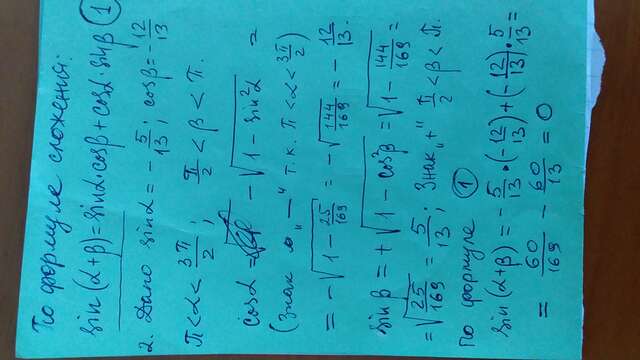 По формуле сложения:
sin(α+β)=sinα·cosβ+cosα·sinβ ①
2. Дано sinα = - 5/13; cosβ = - 12/13
π<α< 3π/2; π/2 < β < π.
cosα = - √(1 - sin²α) =
(Знак „—“ т.к. π<α< 3π/2)
= - √(1 - 25/169) = - √(144/169) = - 12/13.
sin β = + √(1 - cos²β) = √(1 - 144/169) =
= √(25/169) = 5/13; Знак „+“ π/2 < β < π.
По формуле ①
sin(α+β) = - 5/13 · (- 12/13) + (- 12/13) · 5/13 =
= 60/169 - 60/13 = 0